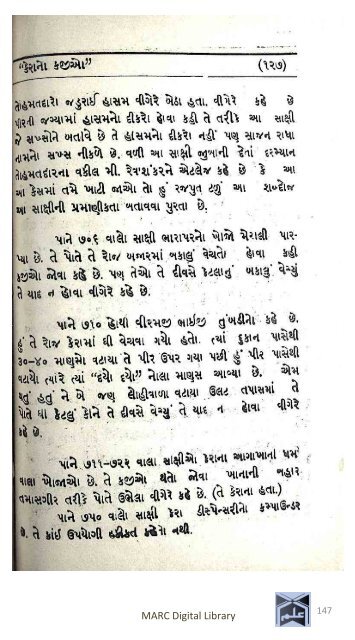 "કેરાનો કજીઓ" (૧૨૭)
તોહમતદારો જડુરાઈ હાસમ વીગેરે બેઠા હતા. વીગેરે કહે છે
પીરની જગ્યામાં હાસમનો દીકરો હોવા કહી તે તરીકે આ સાક્ષી
જે સખ્સોને બતાવે છે તે હાસમનો દીકરો નહીં પણ સાજન રાધા
નામનો સખ્સ નીકળે છે. વળી આ સાક્ષી જુબાની દેતાં દરમ્યાન
તોહમતદારના વકીલ મી. રેવાશંકરને એટલેજ કહે છે કે આ
આ કેસમાં તમે ખાટી જાઓ તો હું રજપુત ટળું આ શબ્દોજ
આ સાક્ષીની પ્રમાણીકતા બતાવવા પુરતા છે.
પાને ૭૦૬ વાલો સાક્ષી ભારાપરનો ખોજો મેરાલી પાર-
પ્યા છે. તે પોતે તે રોજ બજારમાં બકાલું વેચતો હોવા કહી
કજીઓ જોવા કહે છે. પણ તેઓ તે દીવસે કેટલાનું બકાલું વેચ્યું
તે યાદ ન હોવા વીગેરે કહે છે.
પાને ૭૧૦ હોથી વીરમજી ભાઈજી તુંબડીનો કહે છે.
હું તે રોજ કેરામાં ઘી વેચવા ગયો હતો. ત્યાં દુકાન પાસેથી
૩૦-૪૦ માણસો વટાયા તે પીર ઉપર ગયા પછી હું પીર પાસેથી
વટાયો ત્યારે ત્યાં "દયો દયો" બોલા માણસ આવ્યા છે. એમ
થતું હતું ને બે જણ લોહીવાળા વટાયા ઉલટ તપાસમાં તે
પોતે ઘી કેટલું કોને તે દીવસે વેચ્યું તે યાદ ન હોવા વીગેરે
કહે છે.
પાને ૭૧૧-૭૨૨ વાલા સાક્ષીઓ કેરાના આગાખાની ધર્મ
વાલા ખોજાઓ છે. તે કજીઓ થતો જોવા ખાનાની બહાર
તમાસગીર તરીકે પોતે ઉભેલા વીગેરે કહે છે. (તે કેરાના હતા.)
પાને ૭૫૦ વાલો સાક્ષી કેરા ડીસ્પેન્સરીનો કમ્પાઉન્ડર
છે. તે કાંઈ ઉપયોગી હકીકત કહેતો નથી.
MARC Digital Library
147